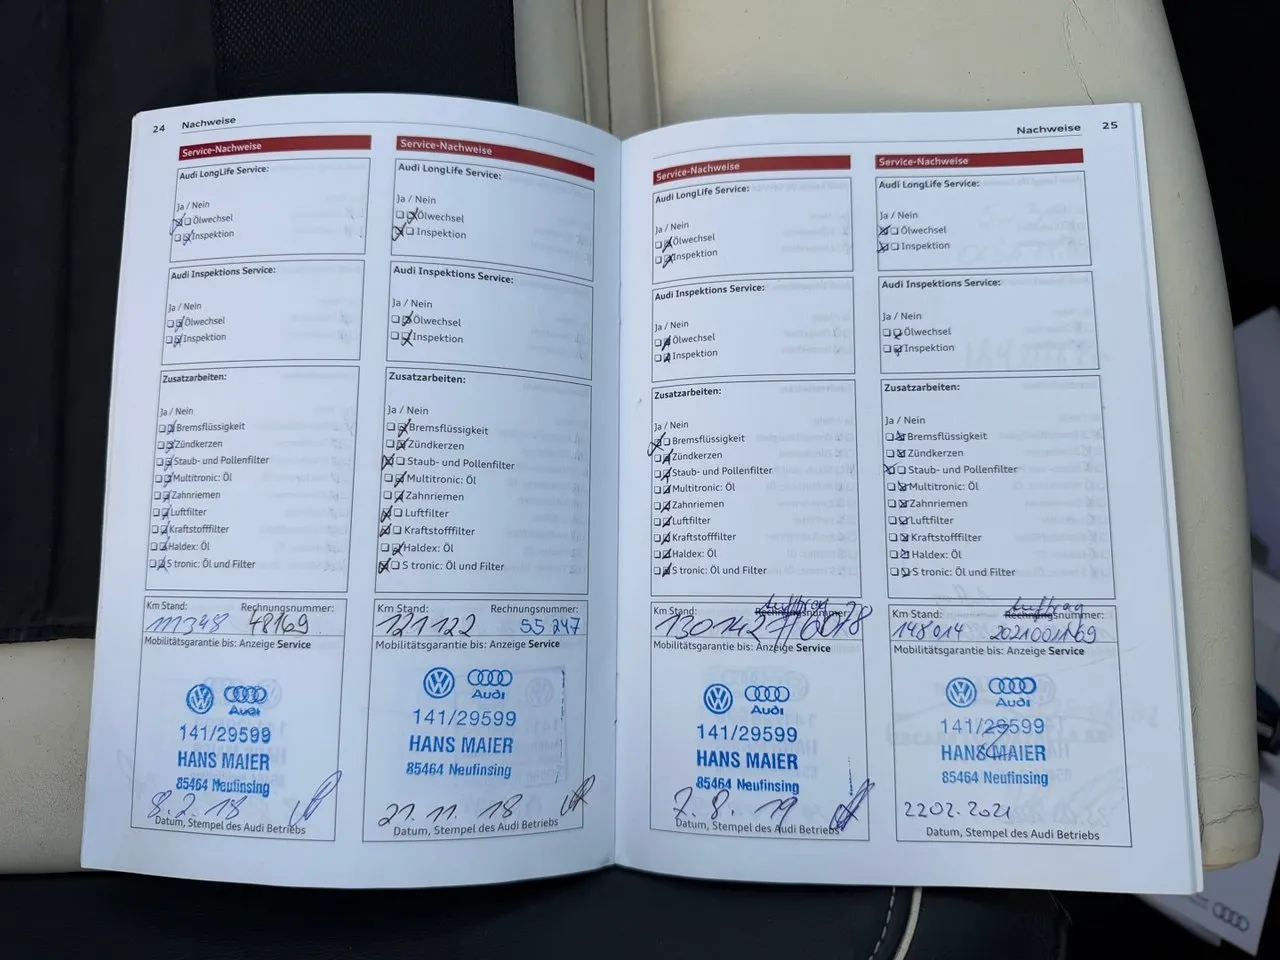 24 Nachweise
Service-Nachweise
Audi LongLife Service:
Ja / Nein
Ölwechsel
Inspektion
Audi Inspektions Service:
Ja / Nein
Ölwechsel
Inspektion
Zusatzarbeiten:
Ja / Nein
Bremsflüssigkeit
Zündkerzen
Staub- und Pollenfilter
Multitronic: Öl
Zahnriemen
Luftfilter
Kraftstofffilter
Haldex: Öl
S tronic: Öl und Filter
Km Stand: Rechnungsnummer:
111348 48169
Mobilitätsgarantie bis: Anzeige Service
Audi
141/29599
HANS MAIER
85464 Neufinsing
8.2.18
Datum, Stempel des Audi Betriebs
Service-Nachweise
Audi LongLife Service:
Ja / Nein
Ölwechsel
Inspektion
Audi Inspektions Service:
Ja / Nein
Ölwechsel
Inspektion
Zusatzarbeiten:
Ja / Nein
Bremsflüssigkeit
Zündkerzen
Staub- und Pollenfilter
Multitronic: Öl
Zahnriemen
Luftfilter
Kraftstofffilter
Haldex: Öl
S tronic: Öl und Filter
Km Stand: Rechnungsnummer:
121 122 55 247
Mobilitätsgarantie bis: Anzeige Service
Audi
141/29599
HANS MAIER
85464 Neufinsing
21.11.18
Datum, Stempel des Audi Betriebs
Nachweise 25
Service-Nachweise
Audi LongLife Service:
Ja / Nein
Ölwechsel
Inspektion
Audi Inspektions Service:
Ja / Nein
Ölwechsel
Inspektion
Zusatzarbeiten:
Ja / Nein
Bremsflüssigkeit
Zündkerzen
Staub- und Pollenfilter
Multitronic: Öl
Zahnriemen
Luftfilter
Kraftstofffilter
Haldex: Öl
S tronic: Öl und Filter
Auftrag
Km Stand: Rechnungsnummer:
130142
Mobilitätsgarantie bis: Anzeige Service
Audi
141/29599
HANS MAIER
85464 Neufinsing
7.8.19
Datum, Stempel des Audi Betriebs
Service-Nachweise
Audi LongLife Service:
Ja / Nein
Ölwechsel
Inspektion
Audi Inspektions Service:
Ja / Nein
Ölwechsel
Inspektion
Zusatzarbeiten:
Ja / Nein
Bremsflüssigkeit
Zündkerzen
Staub- und Pollenfilter
Multitronic: Öl
Zahnriemen
Luftfilter
Kraftstofffilter
Haldex: Öl
S tronic: Öl und Filter
Auftrag
Km Stand: Rechnungsnummer:
148014 2021001169
Mobilitätsgarantie bis: Anzeige Service
Audi
141/29599
HANS MAIER
85464 Neufinsing
22.02.2021
Datum, Stempel des Audi Betriebs